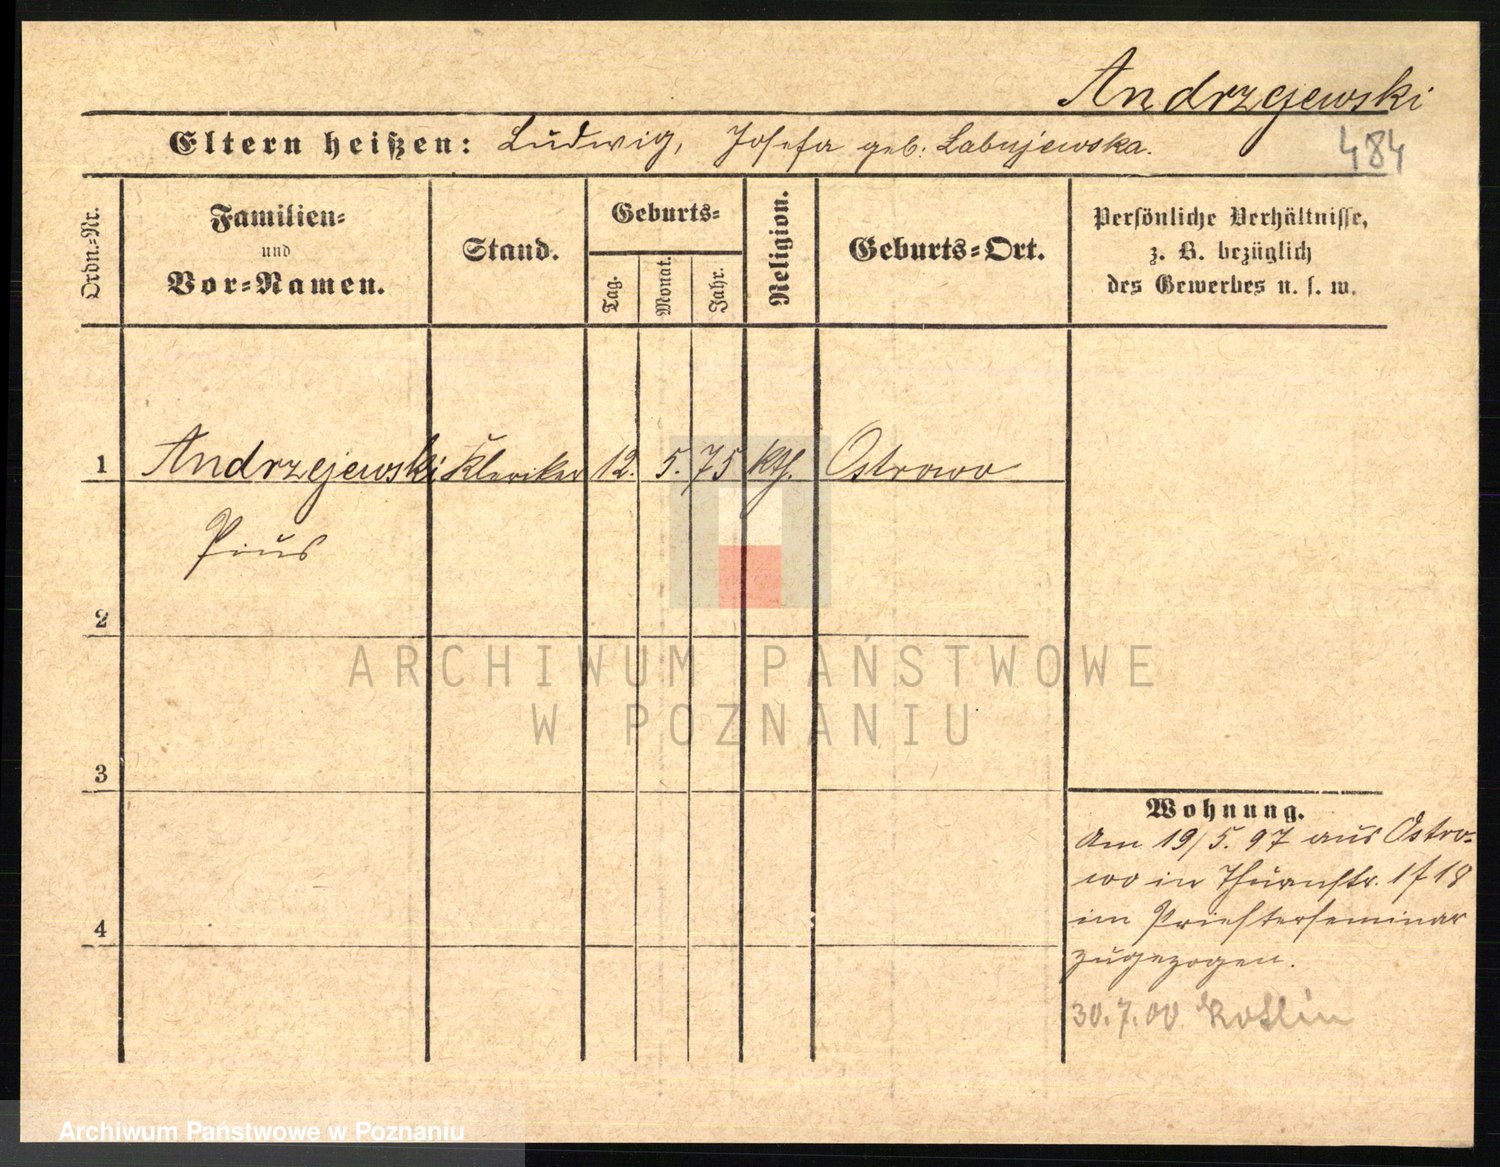 Andrzejewski
Eltern heißen: Ludwig, Josefa geb. Labujewska.
484
Ordn.=Nr.
Familien=
und
Vor=Namen.
Stand.
Geburts=
Tag.
Monat.
Jahr.
Religion.
Geburts=Ort.
Persönliche Verhältnisse,
z. B. bezüglich
des Gewerbes u. s. w.
1 Andrzejewski Kleriker 12. 5. 75 kth. Ostrowo
Pius
2
ARCHIWUM PAŃSTWOWE
W POZNANIU
3
Wohnung.
Am 19/5. 97 aus Ostro=
wo in Thurmstr. 1718
im Priesterseminar
4
zugezogen.
30.7.00 Kotlin
Archiwum Państwowe w Poznaniu